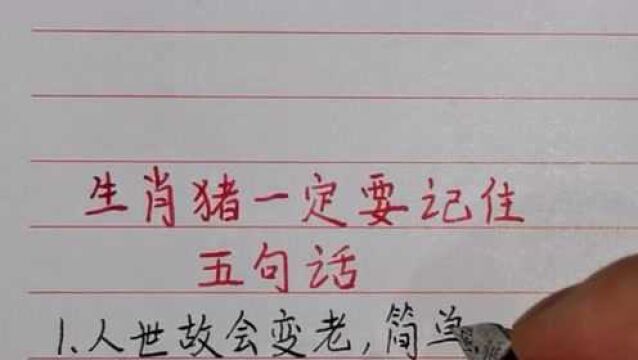 生肖猪一定要记住
五句话
1.人世故会变老,简单